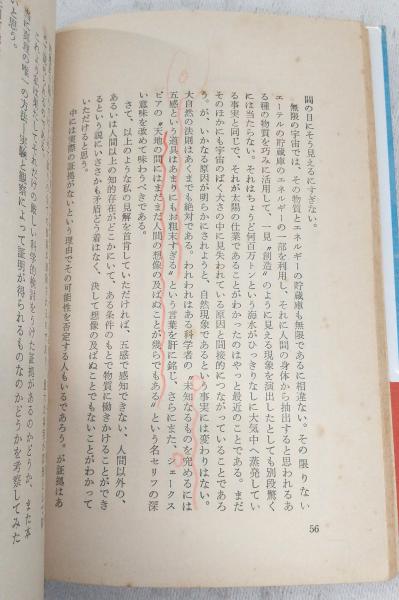 間の目にそう見えるにすぎない。
無限の宇宙では、その物質とエネルギーの貯蔵庫も無限であるに相違ない。その限りない
エーテルの貯蔵庫のエネルギーの一部を利用し、それに人間の身体から抽出すると思われるあ
る種の物質を巧みに活用して、一見〝創造〟のように見える現象を演出したとしても別段驚く
には当たらない。それはちょうど何百万トンという海水がひっきりなしに大気中へ蒸発してい
る事実と同じで、それが太陽の仕業であることがわかったのはやっと最近のことである。まだ
そのほかにも宇宙のばく大さの中に見失われている原因と間接的につながっていることであろ
う。が、いかなる原因が明らかにされようと、自然現象であるという事実には変わりはない。
大自然の法則はあくまでも絶対である。われわれはある科学者の〝未知なるものを究めるには
五感という道具はあまりにもお粗末すぎる〟という言葉を肝に銘じ、さらにまた、シェークス
ピアの〝天地の間にはまだまだ人間の想像の及ばぬことが幾らでもある〟という名セリフの深
い意味を改めて味わうべきである。
さて、以上のような私の見解を首肯していただければ、五感で感知できない、人間以外の、
あるいは人間以上の知的存在がどこかにいて、ある条件のもとで物質に働きかけることができ
るという説にいささかも矛盾どう着はなく、決して想像の及ばぬことでもないことがわかって
いただけると思う。
中には実際の証拠がないという理由でその可能性を否定する人もいるであろう。が証拠はあ
56